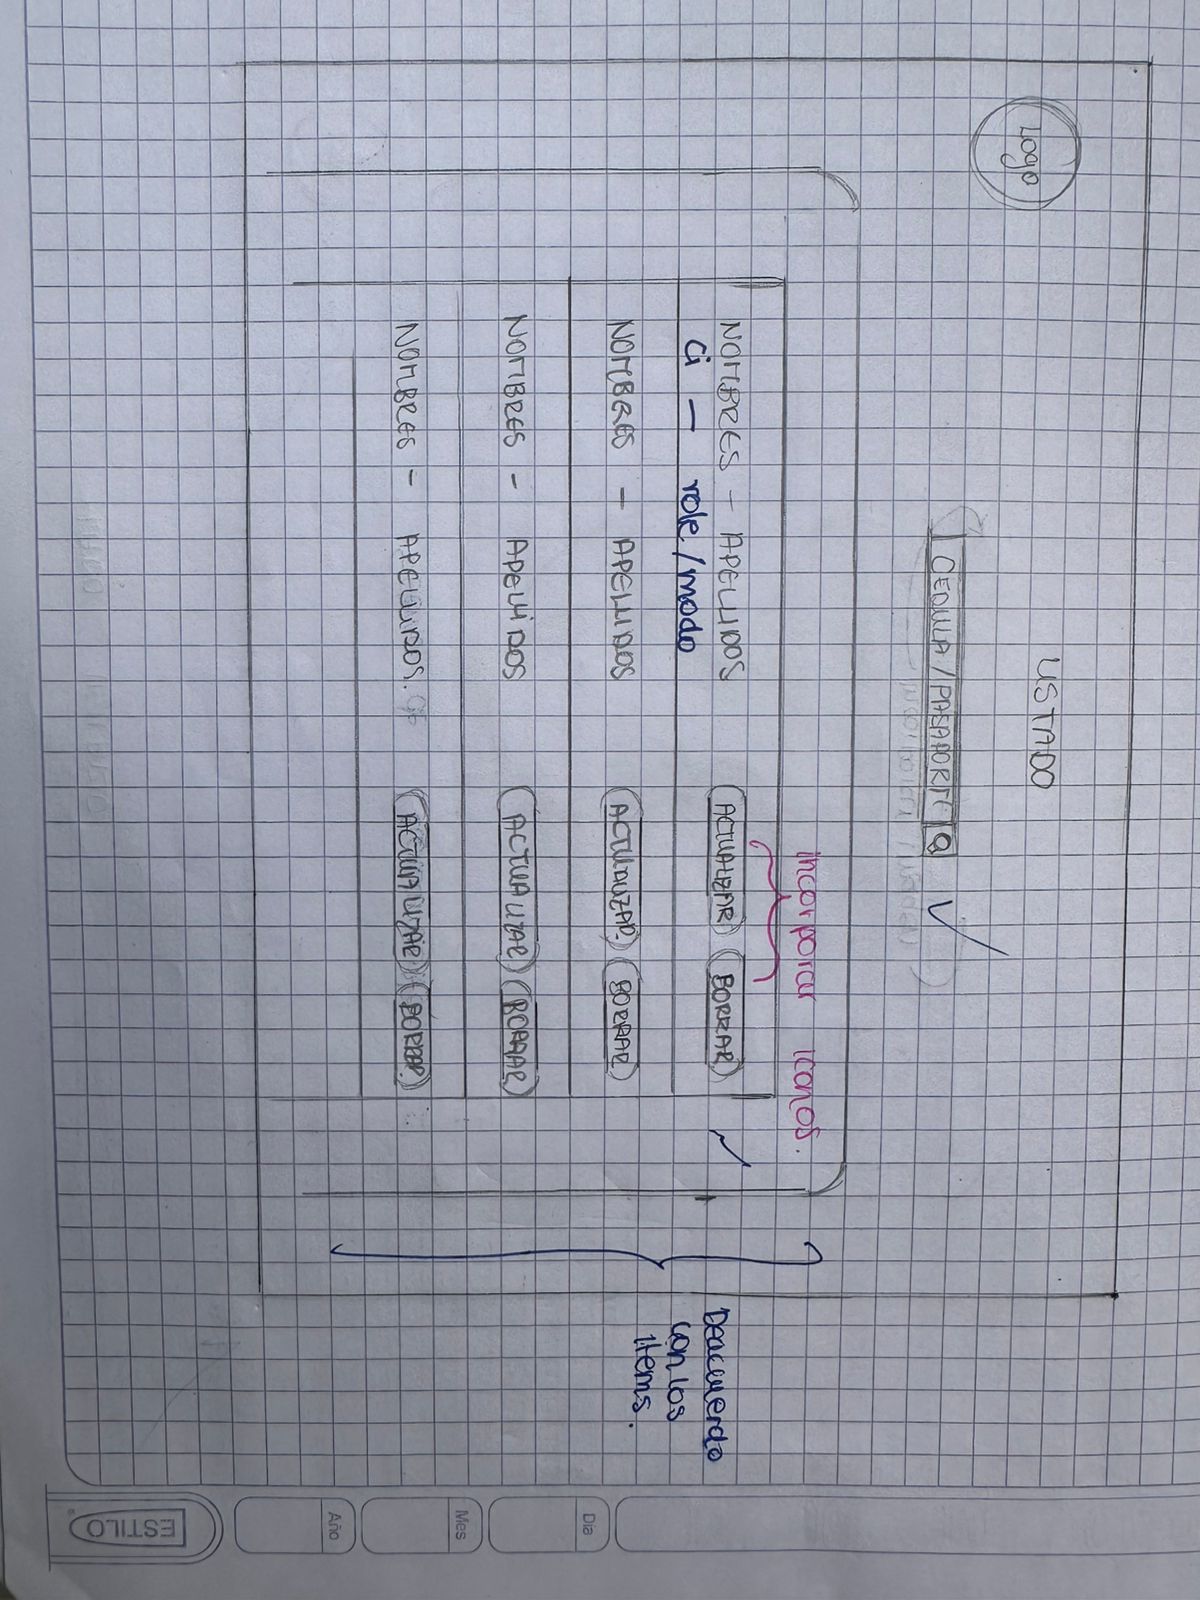 Logo
LISTADO
CEDULA / PASAPORTE
incorporar iconos.
NOMBRES - APELLIDOS ACTUALIZAR BORRAR
Ci - role/modo
NOMBRES - APELLIDOS ACTUALIZAR BORRAR
NOMBRES - APELLIDOS ACTUALIZAR BORRAR
NOMBRES - APELLIDOS. ACTUALIZAR BORRAR
Deacuerdo
con los
items.
Dia
Mes
Año
ESTILO